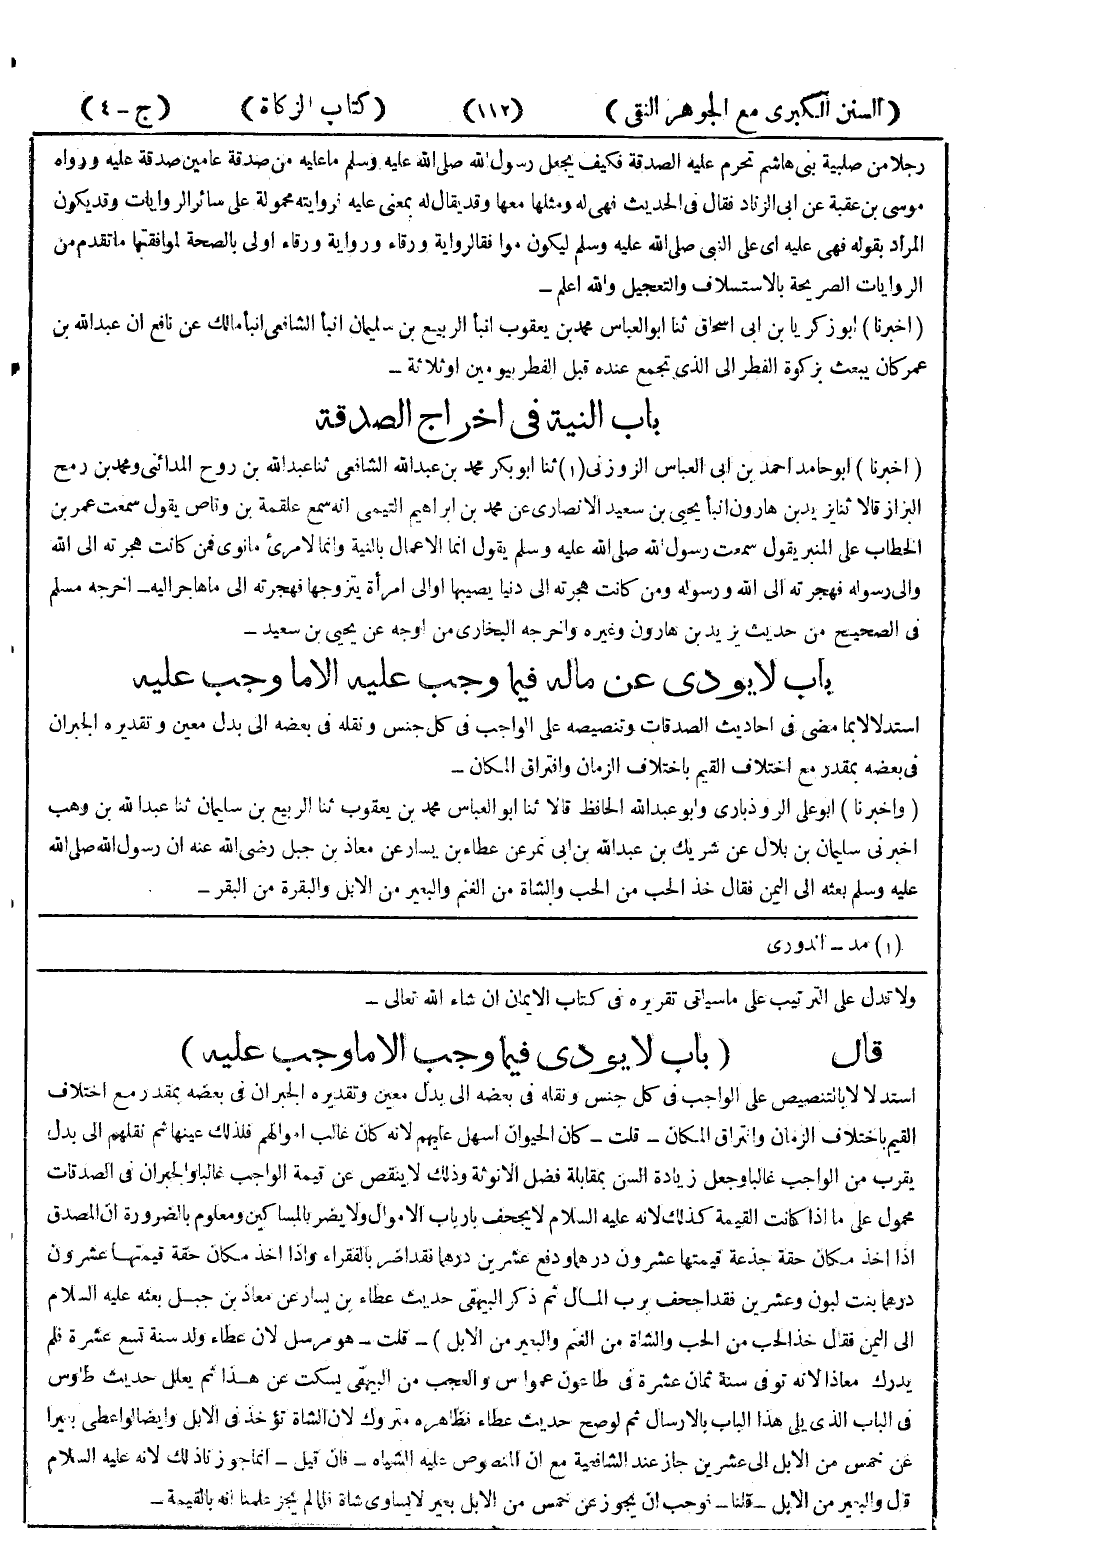 (السنن الكبرى مع الجوهر النقى) (١١٢) (كتاب الزكاة) (ج - ٤)
رجلا من صلبية بنى هاشم تحرم عليه الصدقة فكيف يجعل رسول الله صلى الله عليه وسلم ماعليه من صدقة عامين صدقة عليه ورواه
موسى بن عقبة عن ابى الزناد فقال فى الحديث فهى له ومثلها معها وقد يقال له بمعنى عليه فروايته محمولة على سائر الروايات وقد يكون
المراد بقوله فهى عليه اى على النبى صلى الله عليه وسلم ليكون موافقا لرواية ورقاء ورواية ورقاء اولى بالصحة لموافقتها ماتقدم من
الروايات الصريحة بالاستسلاف والتعجيل والله اعلم -
(اخبرنا) ابو زكريا بن ابى اسحاق ثنا ابو العباس محمد بن يعقوب انبأ الربيع بن سليمان انبأ الشافعى انبأ مالك عن نافع ان عبدالله بن
عمر كان يبعث بزكوة الفطر الى الذى تجمع عنده قبل الفطر بيومين او ثلاثة -
باب النية فى اخراج الصدقة
(اخبرنا) ابو حامد احمد بن ابى العباس الزوزنى (١) ثنا ابو بكر محمد بن عبدالله الشافعى ثنا عبدالله بن روح المدائنى ومحمد بن رمح
البزاز قالا ثنا يزيد بن هارون انبأ يحيى بن سعيد الانصارى عن محمد بن ابراهيم التيمى انه سمع علقمة بن وقاص يقول سمعت عمر بن
الخطاب على المنبر يقول سمعت رسول الله صلى الله عليه وسلم يقول انما الاعمال بالنية وانما لامرئ مانوى فمن كانت هجرته الى الله
والى رسوله فهجرته الى الله ورسوله ومن كانت هجرته الى دنيا يصيبها او الى امرأة يتزوجها فهجرته الى ماهاجر اليه - اخرجه مسلم
فى الصحيح من حديث يزيد بن هارون وغيره واخرجه البخارى من اوجه عن يحيى بن سعيد -
باب لا يؤدى عن ماله فيما وجب عليه الا ما وجب عليه
استدلالا بما مضى فى احاديث الصدقات وتنصيصه على الواجب فى كل جنس ونقله فى بعضه الى بدل معين وتقديره الجبران
فى بعضه بمقدر مع اختلاف القيم باختلاف الزمان وافتراق المكان -
(واخبرنا) ابو على الروذبارى وابو عبدالله الحافظ قالا ثنا ابو العباس محمد بن يعقوب ثنا الربيع بن سليمان ثنا عبدالله بن وهب
اخبرنى سليمان بن بلال عن شريك بن عبدالله بن ابى نمر عن عطاء بن يسار عن معاذ بن جبل رضى الله عنه ان رسول الله صلى الله
عليه وسلم بعثه الى اليمن فقال خذ الحب من الحب والشاة من الغنم والبعير من الابل والبقرة من البقر -
(١) مد - الدورى
ولا تدل على الترتيب على ماسياتى تقريره فى كتاب الايمان ان شاء الله تعالى -
قال (باب لا يؤدى فيما وجب الا ما وجب عليه)
استدلالا بالتنصيص على الواجب فى كل جنس ونقله فى بعضه الى بدل معين وتقديره الجبران فى بعضه بمقدر مع اختلاف
القيم باختلاف الزمان وافتراق المكان - قلت - كان الحيوان اسهل عليهم لانه كان غالب اموالهم فلذلك عينها ثم نقلهم الى بدل
يقرب من الواجب غالبا وجعل زيادة السن بمقابلة فضل الانوثة وذلك لاينقص عن قيمة الواجب غالبا والجبران فى الصدقات
محمول على ما اذا كانت القيمة كذلك لانه عليه السلام لايجحف بارباب الاموال ولا يضر بالمساكين ومعلوم بالضرورة ان المصدق
اذا اخذ مكان حقة جذعة قيمتها عشرون درهما ودفع عشرين درهما فقد اضر بالفقراء واذا اخذ مكان حقة قيمتها عشرون
درهما بنت لبون وعشرين فقد اجحف برب المال ثم ذكر البيهقى حديث عطاء بن يسار عن معاذ بن جبل بعثه عليه السلام
الى اليمن فقال خذ الحب من الحب والشاة من الغنم والبعير من الابل) - قلت - هو مرسل لان عطاء ولد سنة تسع عشرة فلم
يدرك معاذا لانه توفى سنة ثمان عشرة فى طاعون عمواس والعجب من البيهقى يسكت عن هذا ثم يعلل حديث طاوس
فى الباب الذى يلى هذا الباب بالارسال ثم لوصح حديث عطاء فظاهره متروك لان الشاة تؤخذ فى الابل وايضا لو اعطى بعيرا
عن خمس من الابل الى عشرين جاز عند الشافعية مع ان المنصوص عليه الشياه - فان قيل - انما جوزنا ذلك لانه عليه السلام
قال والبعير من الابل - قلنا - فوجب ان يجوز عن خمس من الابل بعير لايساوى شاة فلما لم يجز علمنا انه بالقيمة -